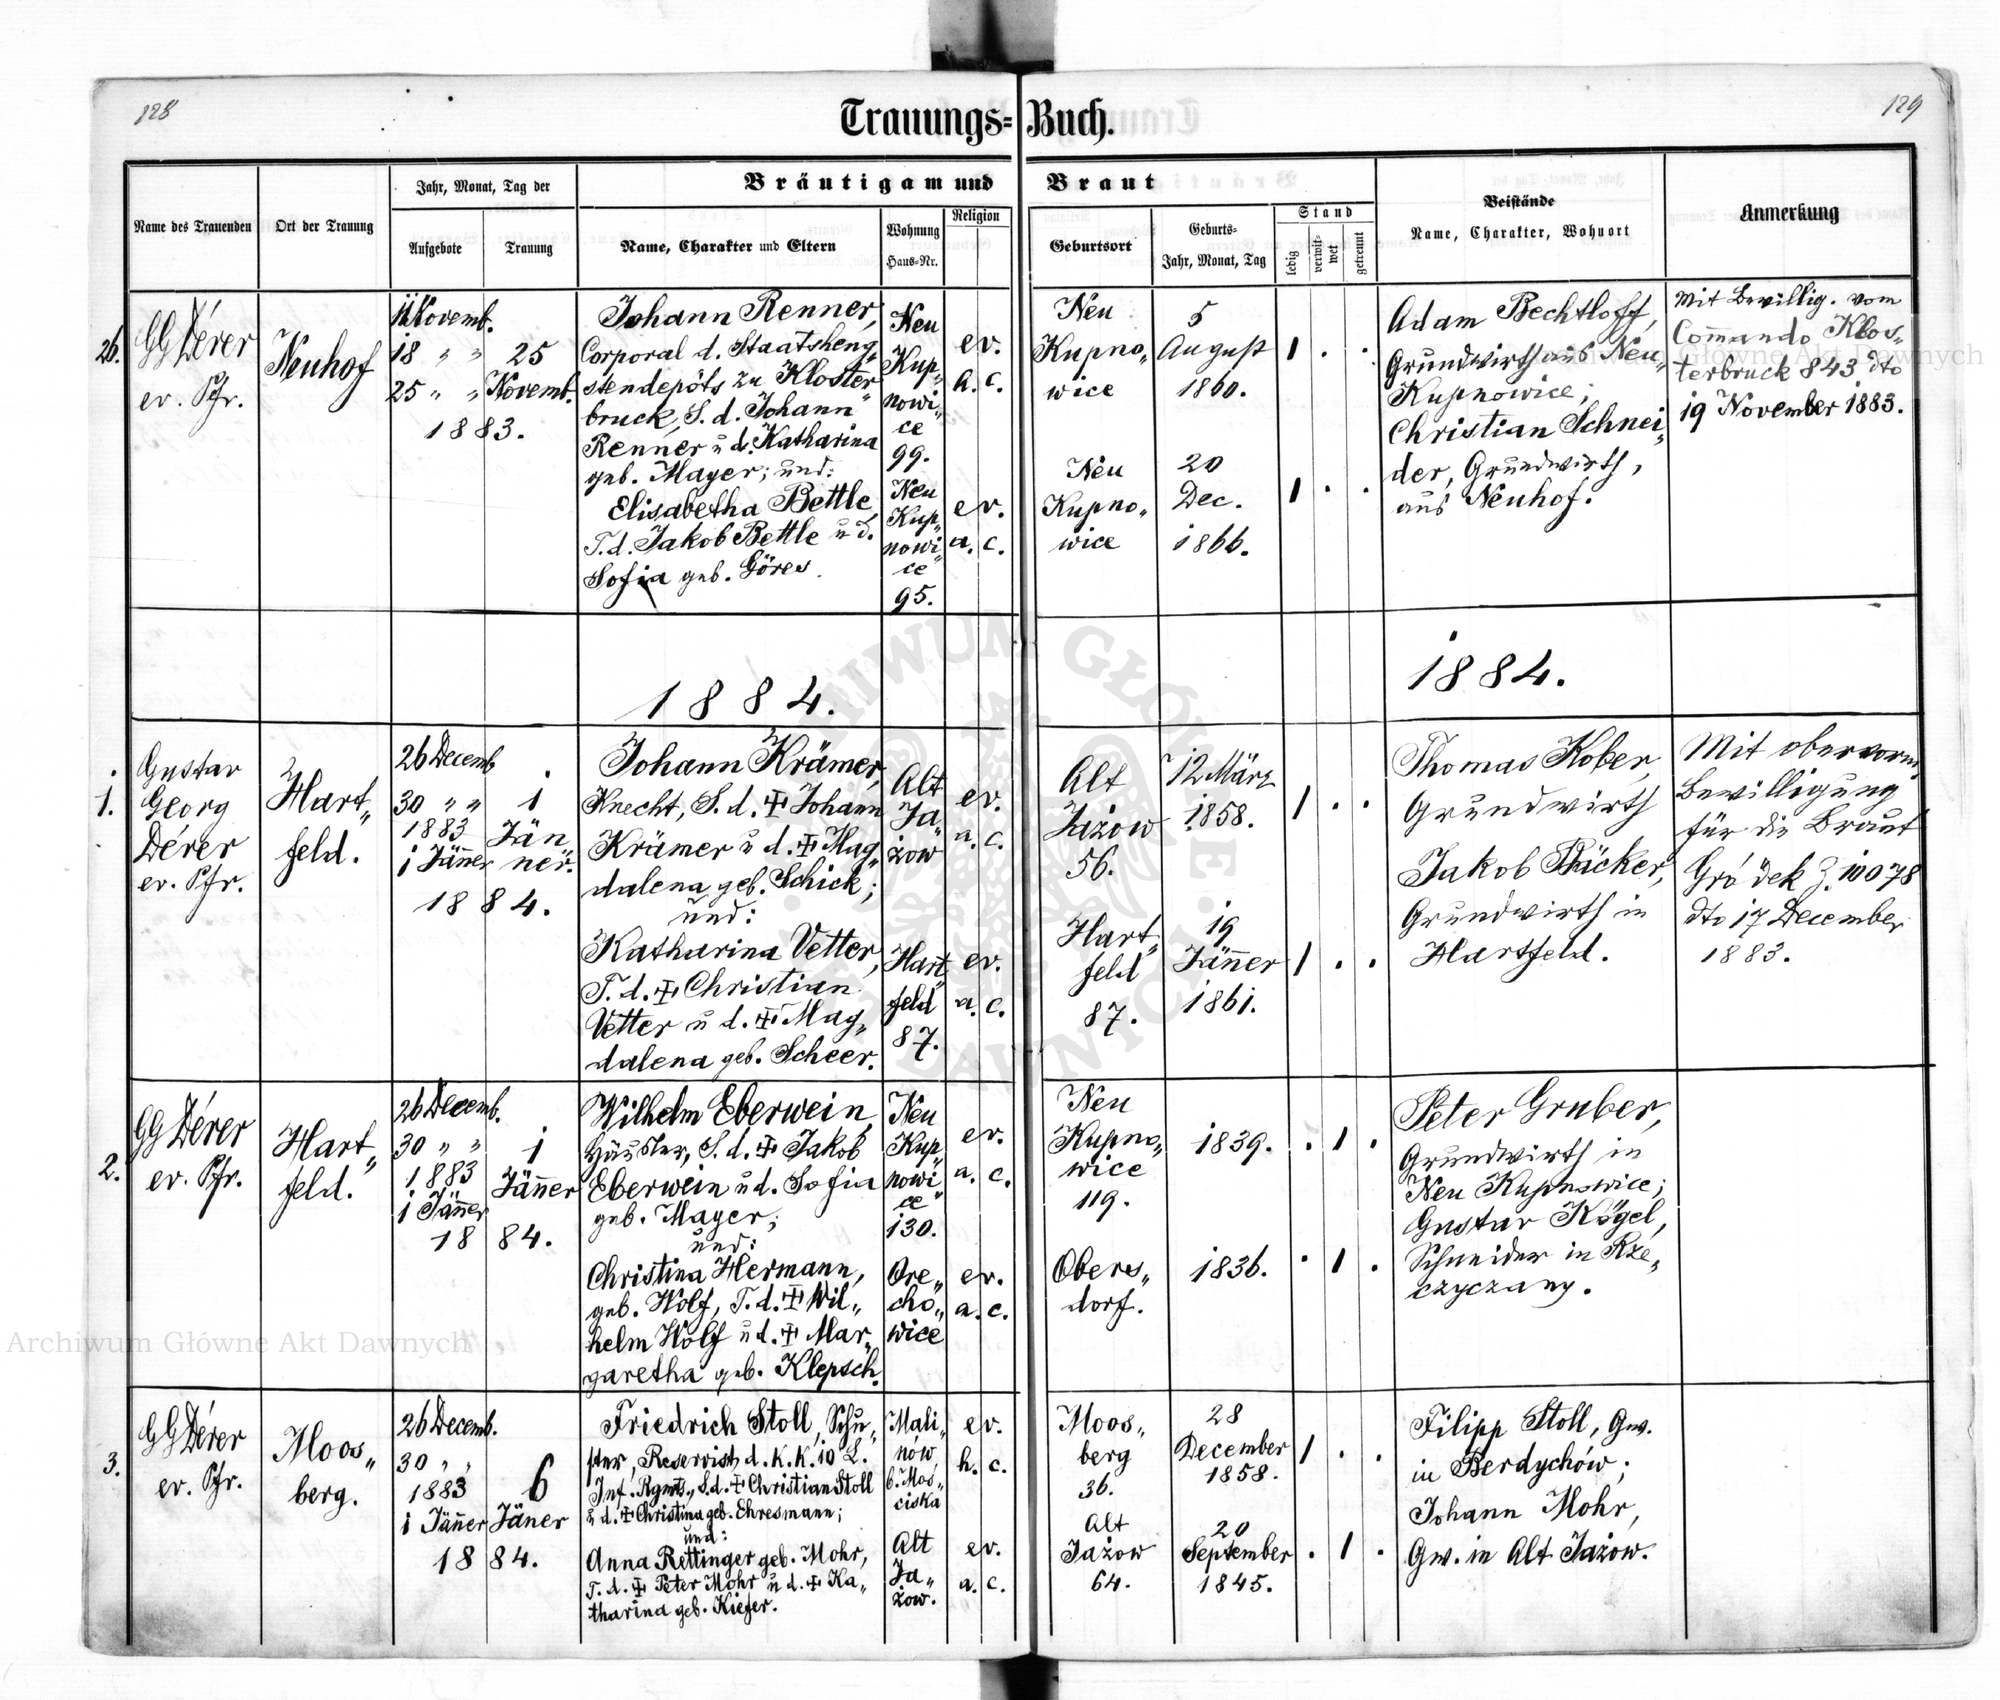 128
129
Trauungs=Buch.
Name des Trauenden
Ort der Trauung
Jahr, Monat, Tag der
Aufgebote
Trauung
Bräutigam und Braut
Name, Charakter und Eltern
Wohnung
Haus-Nr.
Religion
Geburtsort
Geburts-
Jahr, Monat, Tag
Stand
ledig
verwit-
wet
getrennt
Beistände
Name, Charakter, Wohnort
Anmerkung
26.
GG Dérer
ev. Pfr.
Neuhof
11 Novemb.
18 " " 25
25 " " Novemb.
1883.
Johann Renner,
Corporal d. Staatsheng„
stendepôts zu Kloster„
bruck, S. d. Johann
Renner u d. Katharina
geb. Mayer; und:
Elisabetha Bettle,
T. d. Jakob Bettle u d.
Sofia geb. Göres.
Neu
Kup„
nowi„
ce
99.
Neu
Kup„
nowi„
ce
95.
ev.
h. c.
ev.
a. c.
Neu
Kupno„
wice
Neu
Kupno„
wice
5
August
1860.
20
Dec.
1866.
1 . .
1 . .
Adam Bechtloff,
Grundwirth aus Neu„
Kupnowice;
Christian Schnei„
der, Grundwirth,
aus Neuhof.
Mit Bewillig. vom
Commando Klos„
terbruck 843 dto
19 November 1883.
1884.
1884.
1.
Gustav
Georg
Dérer
ev. Pfr.
Hart„
feld.
26 Decemb.
30 " " 1
1883 Jän„
1 Jänner ner.
1884.
Johann Krämer,
Knecht, S. d. ‡ Johann
Krämer u d. ‡ Mag„
dalena geb. Schick;
und:
Katharina Vetter,
T. d. ‡ Christian
Vetter u d. ‡ Mag„
dalena geb. Scheer.
Alt
Ja„
żow
Hart„
feld
87.
ev.
a. c.
ev.
a. c.
Alt
Jażow
56.
Hart„
feld
87.
12 März
1858.
19
Jänner
1861.
1 . .
1 . .
Thomas Kober,
Grundwirth
Jakob Bäcker,
Grundwirth in
Hartfeld.
Mit obervorm.
Bewilligung
für die Braut
Gródek Z. 10078
dto 17 December
1883.
2.
GG Dérer
ev. Pfr.
Hart„
feld.
26 Decemb.
30 " " 1
1883 Jänner
1 Jänner
1884.
Wilhelm Eberwein,
Häusler, S. d. ‡ Jakob
Eberwein u d. Sofia
geb. Mayer;
und:
Christina Hermann,
geb. Wolf, T. d. ‡ Wil„
helm Wolf u d. ‡ Mar„
garetha geb. Klepsch.
Neu
Kup„
nowi„
ce
130.
Ore„
cho„
wice
ev.
a. c.
ev.
a. c.
Neu
Kupno„
wice
119.
Obers„
dorf.
1839.
1836.
. 1 .
. 1 .
Peter Gruber,
Grundwirth in
Neu Kupnowice;
Gustav Kögel,
Schneider in Rze„
czyczany.
3.
GG Dérer
ev. Pfr.
Moos„
berg.
26 Decemb.
30 " "
1883 6
1 Jänner Jäner
1884.
Friedrich Stoll, Schu„
ster, Reservist d. K. K. 10 L.
Inf. Rgmts., S. d. ‡ Christian Stoll
u d. ‡ Christina geb. Ehresmann;
und:
Anna Rettinger geb. Mohr,
T. d. ‡ Peter Mohr u d. ‡ Ka„
tharina geb. Kiefer.
Mali„
nów
b. Mos„
ciska
Alt
Ja„
żow.
ev.
h. c.
ev.
a. c.
Moos„
berg
36.
Alt
Jażow
64.
28
December
1858.
20
September
1845.
1 . .
. 1 .
Filipp Stoll, Gw.
in Berdychów;
Johann Mohr,
Gw. in Alt Jażow.
Archiwum Główne Akt Dawnych
Archiwum Główne Akt Dawnych
ARCHIWUM GŁÓWNE AKT DAWNYCH